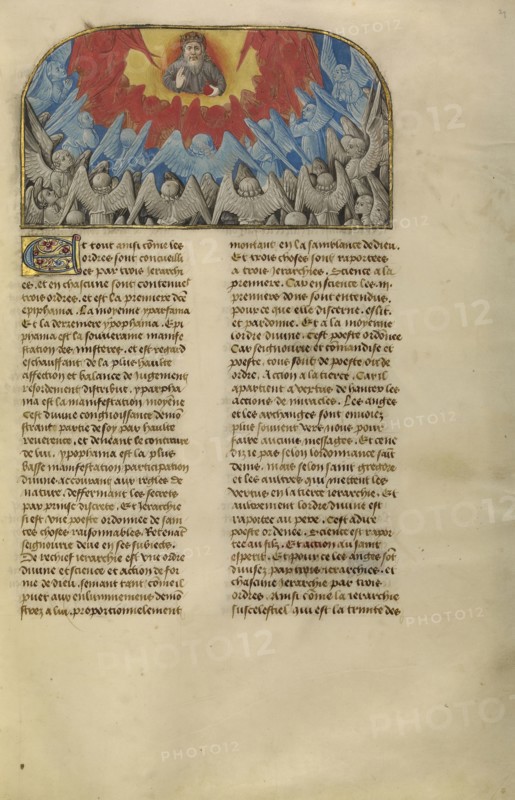 Et tout ainsi cõme les
ordres sont concueilli
es par trois Jerarchi
es. et en chascune sont contenues
trois ordres. et est la premiere dce
epiphania. La moyenne yparfania
Et la derreniere ypophania. Epi
phania est la souveraine manife
station des misteres. et est regard
eschauffant de la plus haulte
affection et balance de iugement
resordement distribut. ypar pha
ma est la manifestation moyẽne
Cest divine congnoissance demõ
strant partie de soy par haulte
reverence. et devẽant le contraire
de lui. ypophania est la plus
basse manifestation participation
divine accourant aux regles de
nature. defformant les secrets
par prinse discrete. Et Jerarchie
si est une poeste ordonnee de sain
ctes choses raisonnables. Retenãt
seignourie deue en ses subiects.
De rechief ierarchie est vne ordre
divine et science et action de for
me de dieu. semant tant cõme il
puet aux enluminemens demõ
strez a lui. proporcionnelement
montant en la samblance de dieu.
Et trois choses sont raportees
a trois Jerarchies. Science a la
premiere. Car en science les .iij.
premiers dons sont entendus.
pour ce que elle discerne. eslit.
et pardonne. Et a la moyenne
lordre divine. cest poeste ordõnee
Car seignourie et comandise et
poeste. tous sont de poeste ou de
ordre. Action a la tierce. Car il
apartient a vertus de haulex les
actions de miracles. Les anges
et les archanges sont envoiez
plus souvent vers nous pour
faire aucuns messages. Et ce ne
di ie pas selon lordonnance sait
denis. mais selon saint gregore
et les aultres qui mettent les
vertus en la tierce ierarchie. Et
aultrement lordre divine est
raportee au pere. Cest a dire
poeste ordenee. Science est rapor
tee au filz. Et action au saint
esperit. Et pour ce les anges sõt
divisez par trois ierarchies. et
chascune ierarchie par trois
ordres. Ainsi cõme la ierarchie
suscelestiel qui est la trinite des
PHOTO12